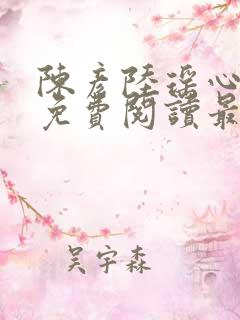 陳彥陸瑶心
免費閱讀最
吴宇森